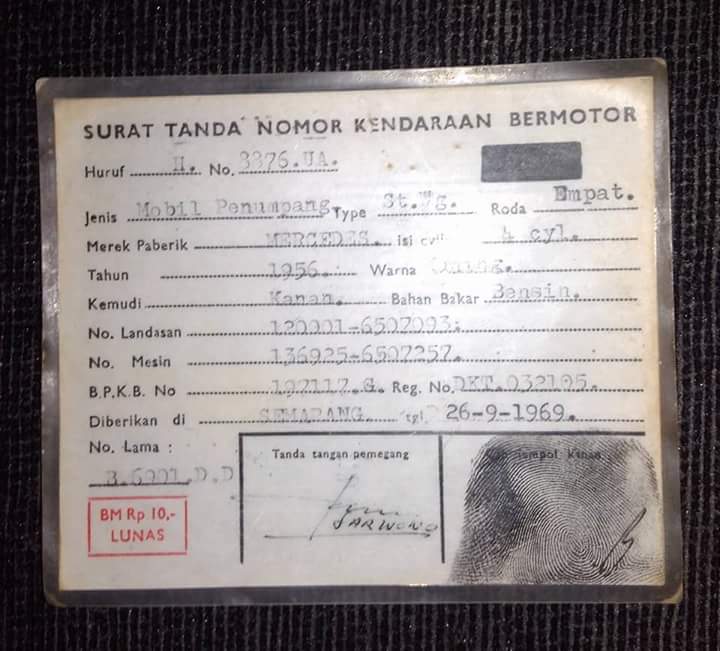 SURAT TANDA NOMOR KENDARAAN BERMOTOR
Huruf H. No. 8876.UA.
Jenis Mobil Penumpang Type St.Wg. Roda Empat.
Merek Paberik MERCEDES. isi cyl. 4 cyl.
Tahun 1956. Warna
Kemudi Kanan. Bahan Bakar Bensin.
No. Landasan 120001-6507093.
No. Mesin 136925-6507257.
B.P.K.B. No 197117.G. Reg. No. DKT.032105.
Diberikan di SEMARANG. tgl 26-9-1969.
No. Lama :
B.6991.D.D
BM Rp 10,-
LUNAS
Tanda tangan pemegang
SARWONO
Cap Jempol Kanan